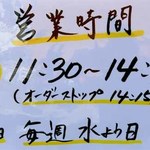 営業時間
11:30〜14:
(オーダーストップ 14:15
日 毎週 水より日